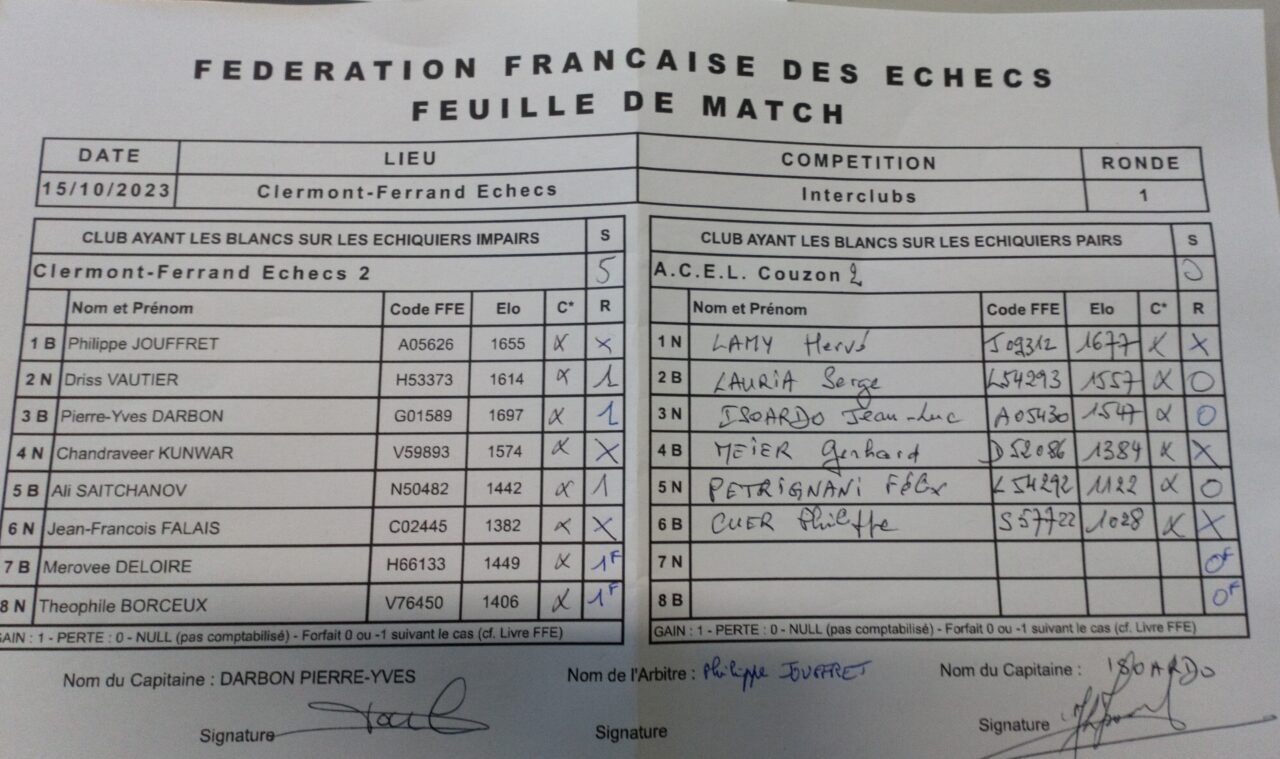 FEDERATION FRANCAISE DES ECHECS
FEUILLE DE MATCH
DATE LIEU COMPETITION RONDE
15/10/2023 Clermont-Ferrand Echecs Interclubs 1
CLUB AYANT LES BLANCS SUR LES ECHIQUIERS IMPAIRS S CLUB AYANT LES BLANCS SUR LES ECHIQUIERS PAIRS S
Clermont-Ferrand Echecs 2 5 A.C.E.L. Couzon 2 0
Nom et Prénom Code FFE Elo C* R Nom et Prénom Code FFE Elo C* R
1 B Philippe JOUFFRET A05626 1655 α X 1 N LAMY Hervé J09312 1677 α X
2 N Driss VAUTIER H53373 1614 α 1 2 B LAURIA Serge L54293 1557 α 0
3 B Pierre-Yves DARBON G01589 1697 α 1 3 N ISOARDO Jean-Luc A05430 1547 α 0
4 N Chandraveer KUNWAR V59893 1574 α X 4 B MEIER Gerhard D52086 1384 α X
5 B Ali SAITCHANOV N50482 1442 α 1 5 N PETRIGNANI Félix L54292 1122 α 0
6 N Jean-Francois FALAIS C02445 1382 α X 6 B CUER Philippe S57722 1028 α X
7 B Merovee DELOIRE H66133 1449 α 1F 7 N 0F
8 N Theophile BORCEUX V76450 1406 α 1F 8 B 0F
GAIN : 1 - PERTE : 0 - NULL (pas comptabilisé) - Forfait 0 ou -1 suivant le cas (cf. Livre FFE) GAIN : 1 - PERTE : 0 - NULL (pas comptabilisé) - Forfait 0 ou -1 suivant le cas (cf. Livre FFE)
Nom du Capitaine : DARBON PIERRE-YVES Nom de l'Arbitre : Philippe JOUFFRET Nom du Capitaine : ISOARDO
Signature Signature Signature